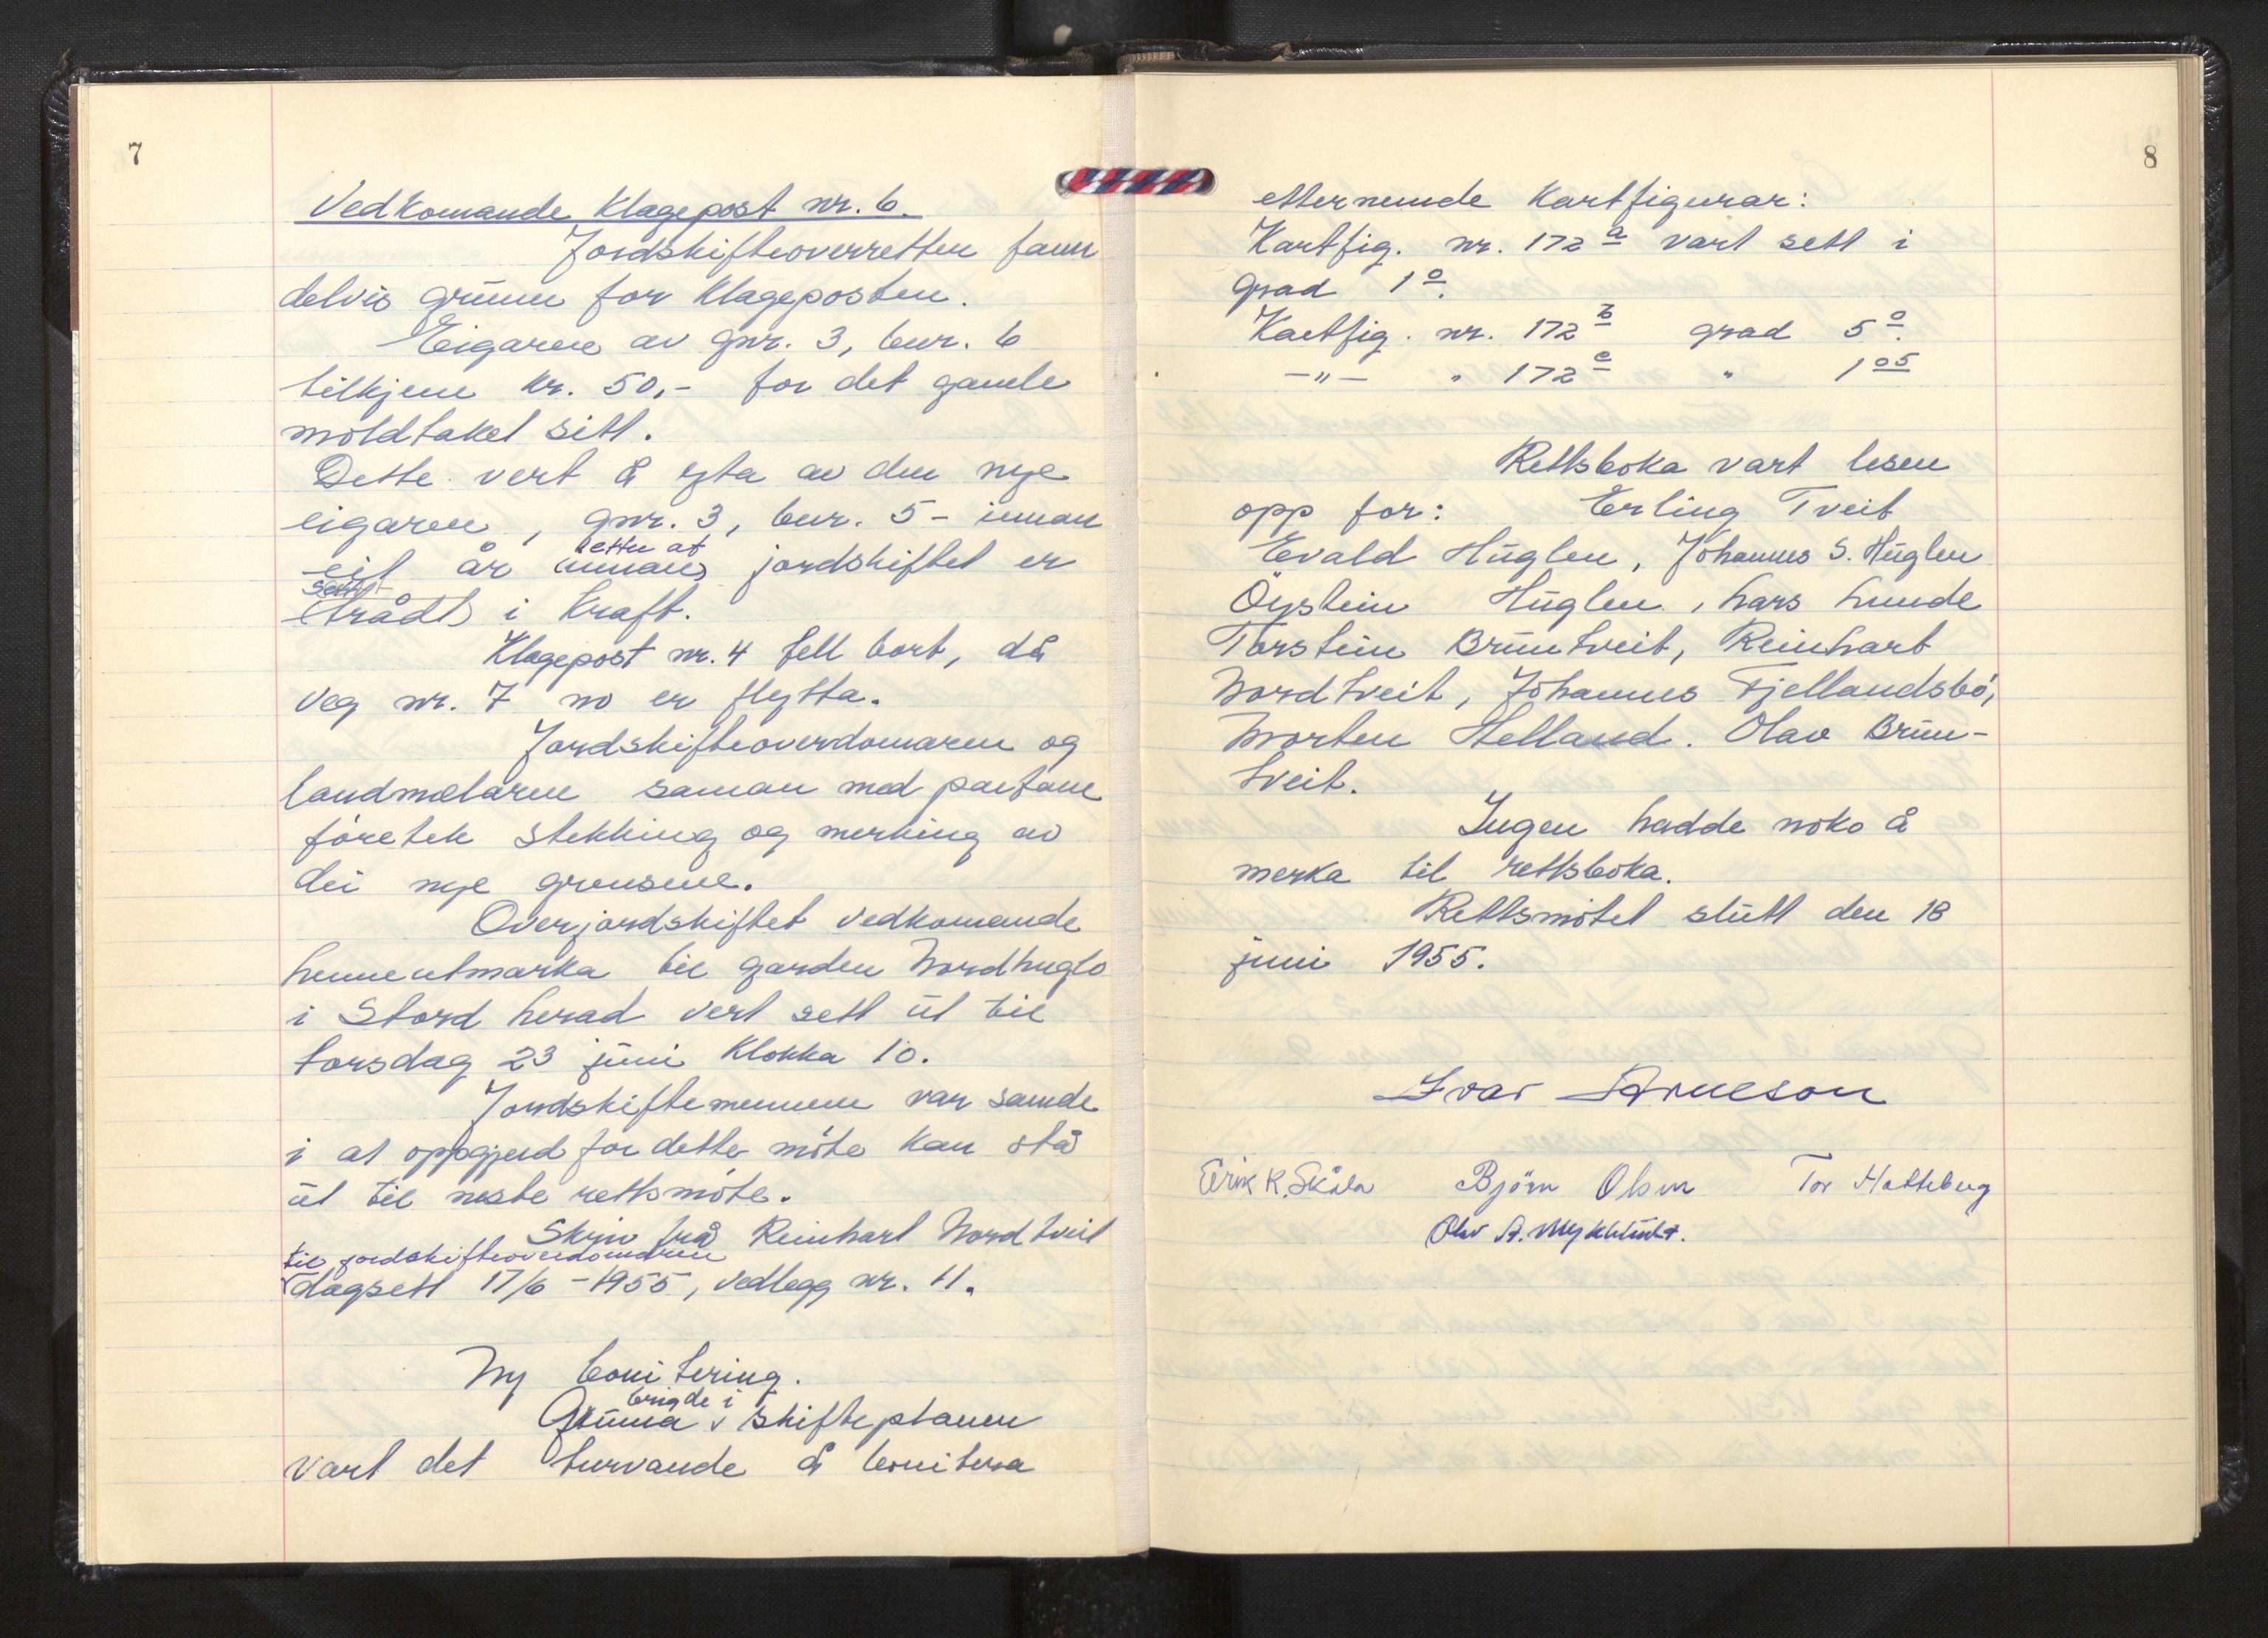 7
Vedkomande Klagepost nr. 6.
Jordskifteoverretten fann
delvis grunn for Klageposten.
Eigaren av gnr. 3, bnr. 6
tilkjenn kr. 50,- for det gamle
moldtaket sitt.
Dette vert å yta av den nye
eigaren, gnr. 3, bnr. 5 - innan
etter at
eit år (innan) jordskiftet er
sett
(trådt) i Kraft.
Klagepost nr. 4 fell bort, då
veg nr. 7 no er flytta.
Jordskifteoverdomaren og
landmælaren saman med partane
føretek stekking og merking av
dei nye grensene.
Overjordskiftet vedkomande
heimeutmarka til garden Nordhuglo
i Stord herad vert sett ut til
torsdag 23 juni Klokka 10.
Jordskiftemennene var samde
i at oppgjerd for dette møte kan stå
ut til neste rettsmøte.
Skriv frå Reinhart Nordtveit
til jordskifteoverdomaren
dagsett 17/6 - 1955, vedlegg nr. 11.
Ny bonitering.
brigde i
Grunna v skifteplanen
vart det turvande å bonitera
8
etternemde Kartfigurar:
Kartfig. nr. 172 a vart sett i
grad 1 0.
Kartfig. nr. 172 b grad 5 0.
-"- " 172 c " 1 05
Rettsboka vart lesen
opp for: Erling Tveit
Evald Huglen, Johannes S. Huglen
Øystein Huglen, Lars Lunde
Torstein Bruntveit, Reinhart
Nordtveit, Johannes Fjellandsbø,
Morten Helland. Olav Brun-
tveit.
Ingen hadde noko å
merka til rettsboka.
Rettsmøtet slutt den 18
juni 1955.
Ivar Arneson
Eirik K. Skåla Bjørn Olsen Tor Hatteberg
Olav A. Myklebust.